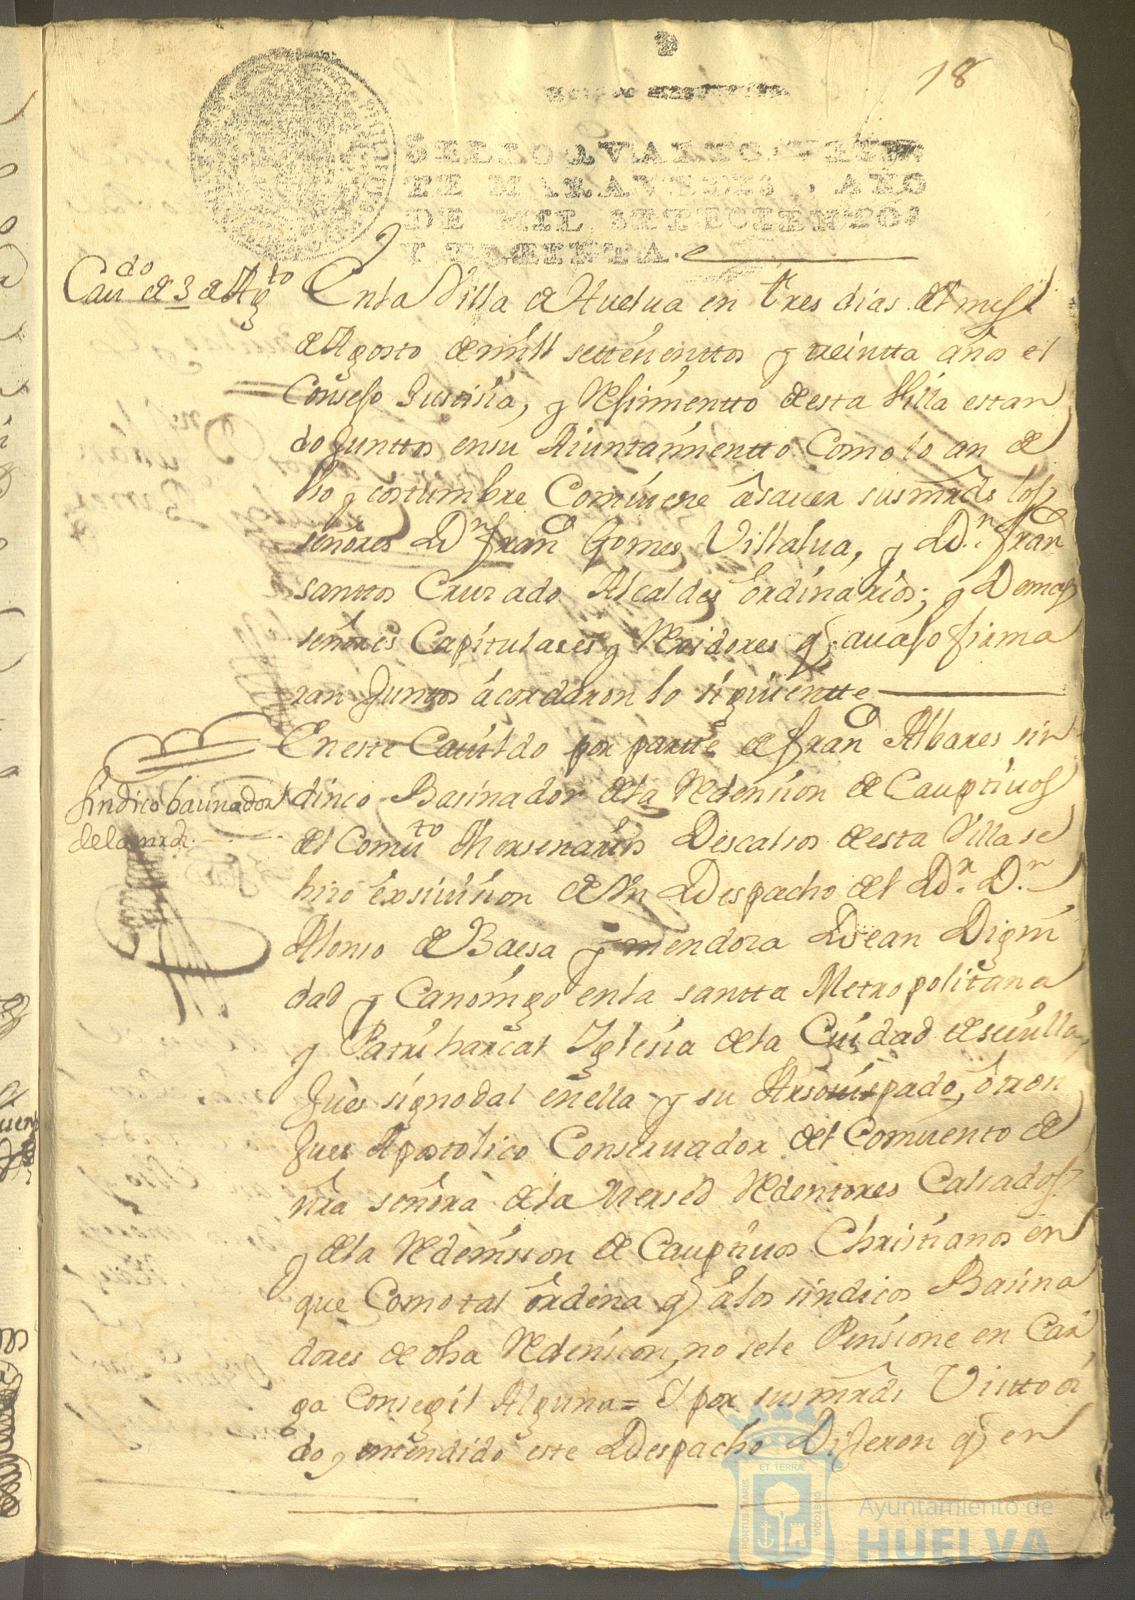 18
SELLO QVARTO, VEIN
TE MARAVEDIS, AÑO
DE MIL SETECIENTOS
Y TREINTA.
Cauḏo de 3 de Agto
En la Villa de Huelua en tres dias del mes
de Agosto de mill settesienttos y treintta años el
Consejo Justisia, y Rejimientto de esta Villa estan
do junttos en su Aiuntamientto Como lo an de
Vso y costumbre Combiene asauer sus mrds los
señores Dn. Franco Gomes Villalua, y Dn. Franco
santtos Cruzado Alcaldes ordinarios; y Demas
señores Capitulares y Rexidores q auajo firma
ran Junttos acordaron lo siguientte
En este Cauildo por partte de Franco Albares sin
Sindico basinador
dico Basinador de la Redension de Cauptiuos
de la mrd.
del Combto Mersenarios Descalsos de esta Villa se
hizo exsiuision de Vn Despacho del Dr. Dn.
Alonso de Baesa y mendoza Dean Digni
dad y Canonigo en la santta Metropolitana
y Patriharcal Yglesia de la Ciudad de seuilla,
Jues signodal en ella y su Arsouispado,
Jues Apostolico Conseruador del Comuento de
nra señora de la Mersed Redentores Calsados
y de la Redemsion de Cauptiuos Christianos en
que Como tal ordena q a los sindicos Basina
dores de dha Redension, no se le Pensione en Car
ga Consegil Alguna = Y por sus mrds Vistto oi
do y entendido este Despacho Dijeron q en
ET TERRÆ
Ayuntamiento de
HUELVA